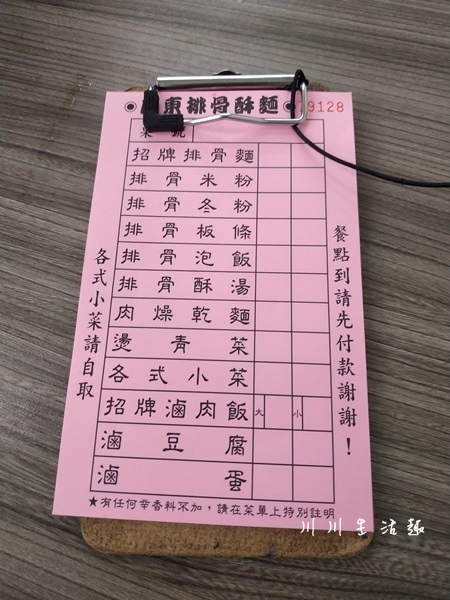 東排骨酥麵
9128
號
招牌排骨麵
排骨米粉
排骨冬粉
排骨板條
排骨泡飯
排骨酥湯
肉燥乾麵
燙青菜
各式小菜
招牌滷肉飯 大 小
滷豆腐
滷蛋
各式小菜請自取
餐點到請先付款謝謝！
★有任何辛香料不加，請在菜單上特別註明
川川生活趣